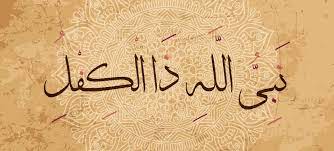 نَبِيُّ اللَّهِ ذَا الْكِفْلِ